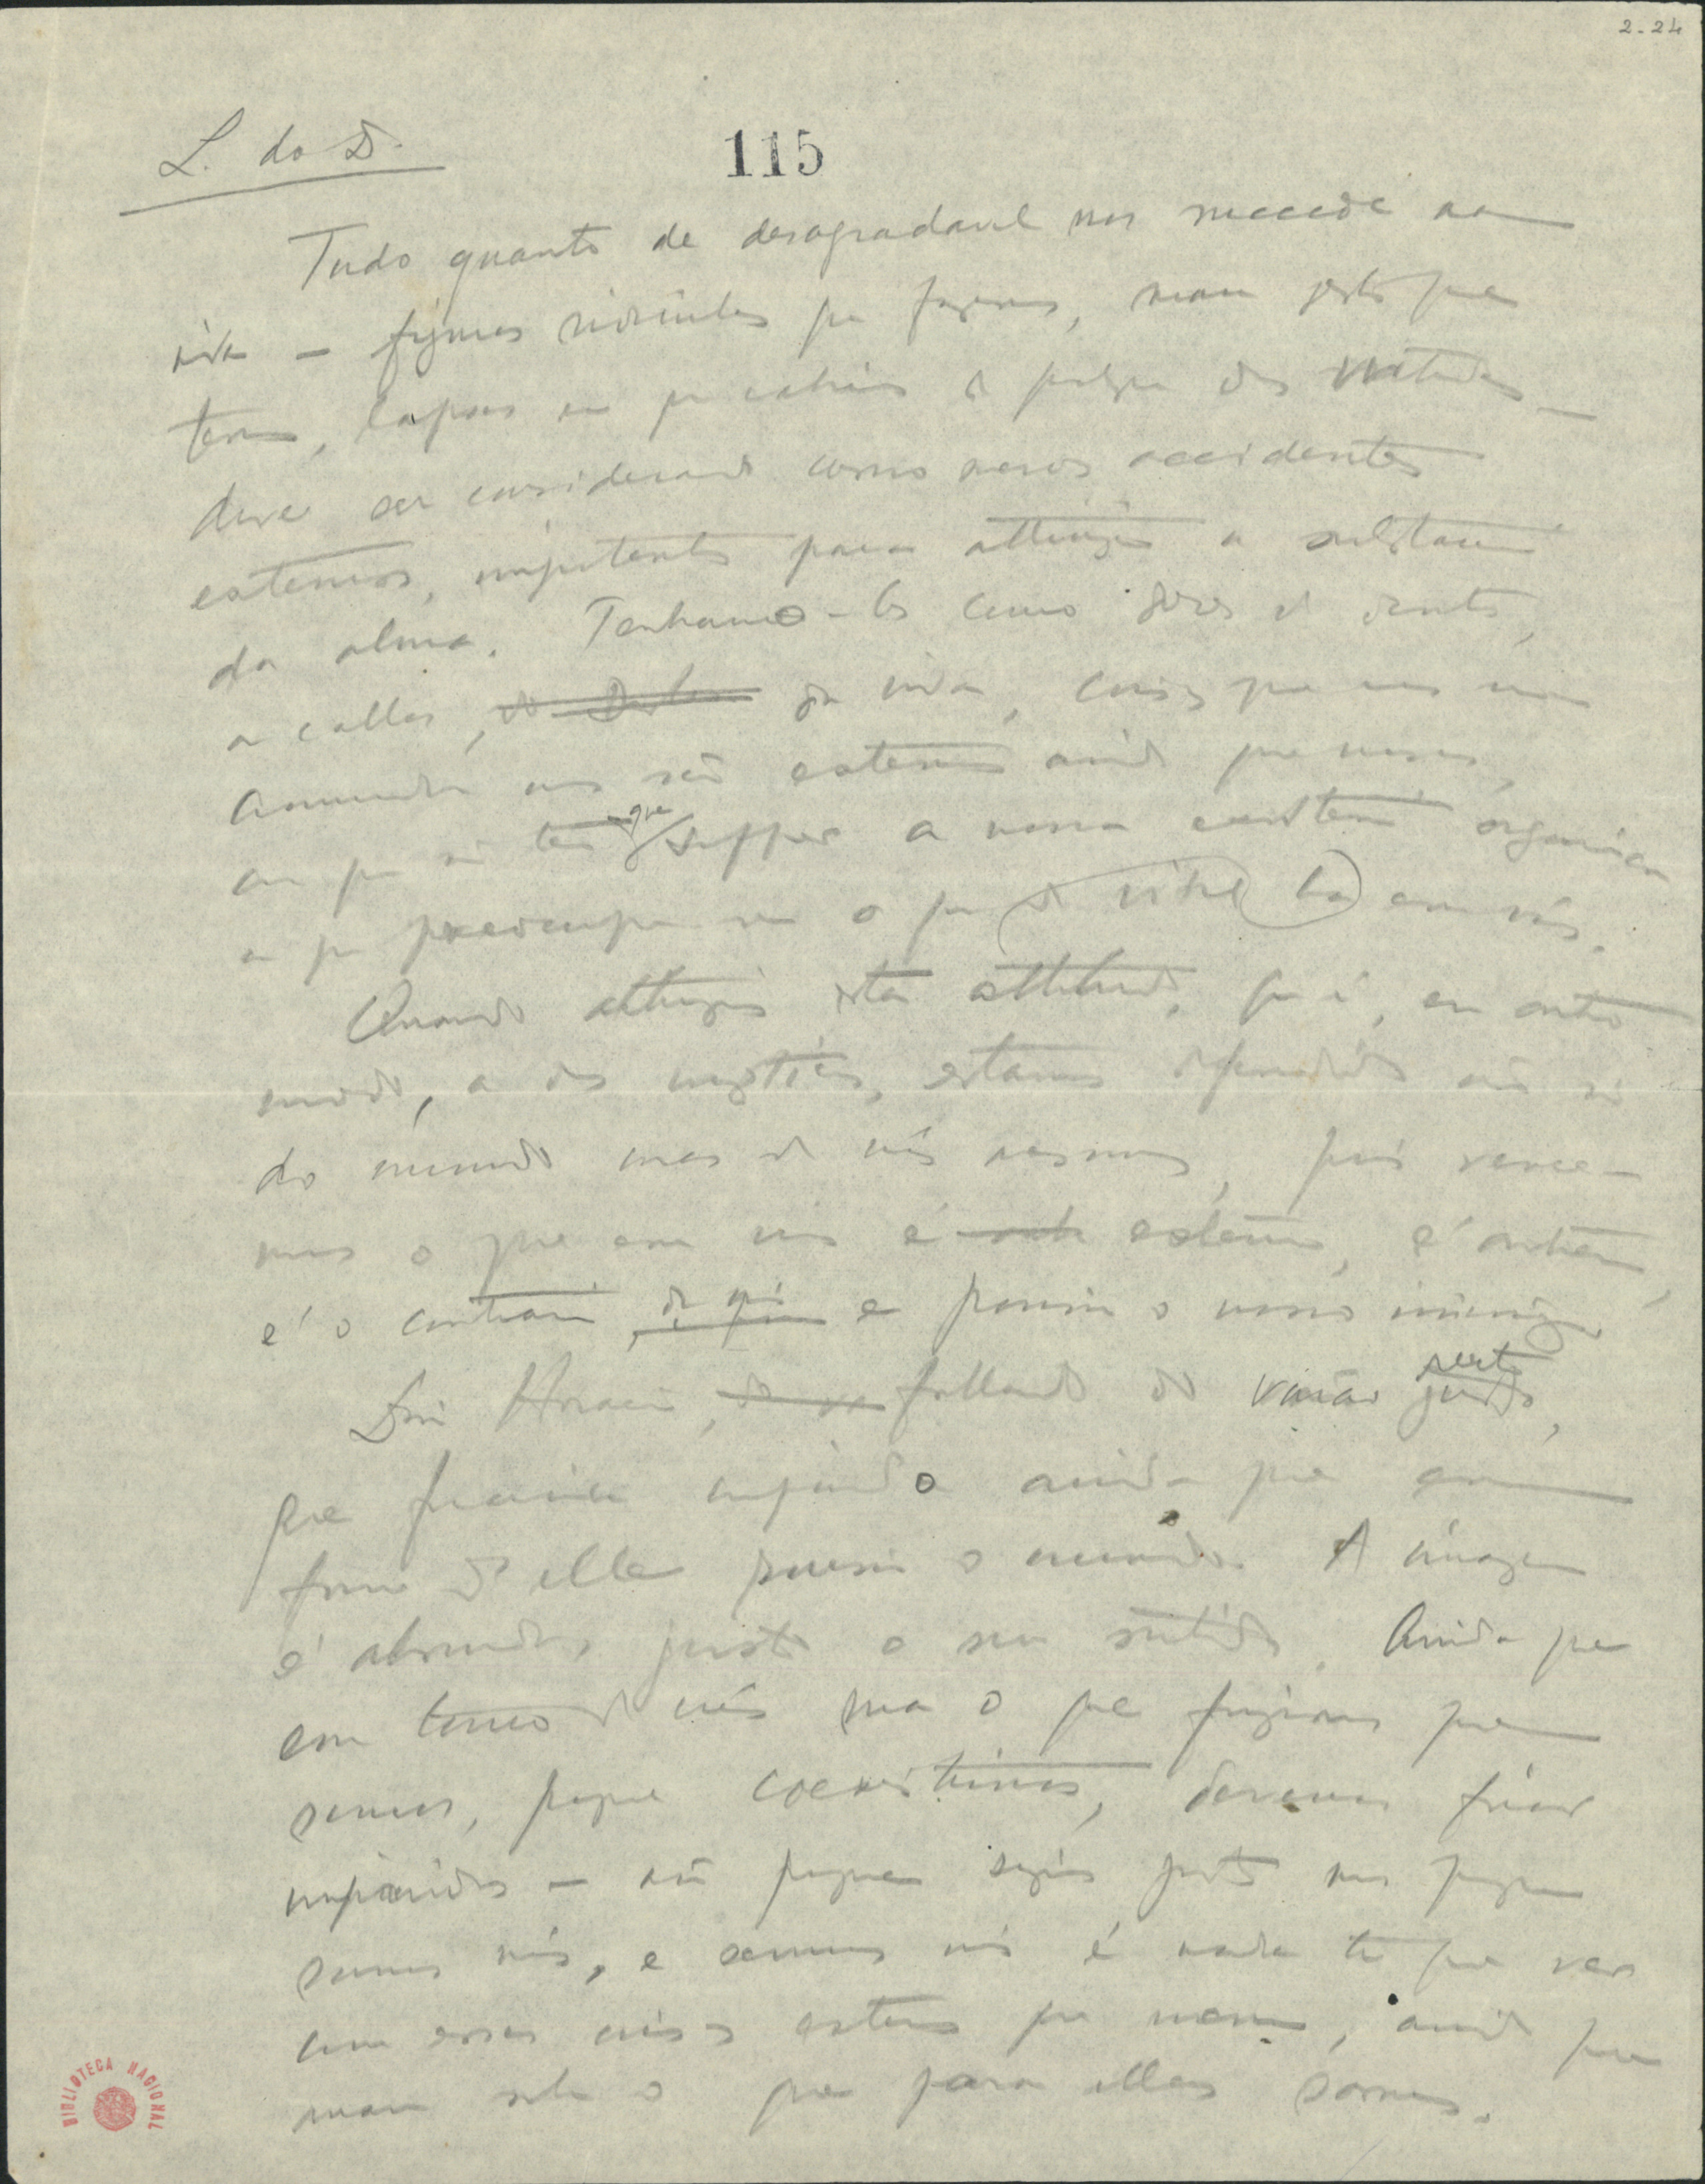 2-24
L. do D.
115
Tudo quanto de desagradavel nos succede na
vida — figuras ridiculas que fazemos, maus gestos que
temos, lapsos em que cahimos de qualquer das virtudes —
deve ser considerado como meros accidentes
externos, impotentes para attingir a substancia
da alma. Tenhamol-os como dores de dentes,
ou callos, da vida, coisas que nos
incommodam mas são externas ainda que nossas,
ou que só tem que suppor a nossa existencia organica
ou que preoccupar-se o que de vital ha em nós.
Quando attingimos esta attitude, que é, em outro
modo, a dos mysticos, estamos defendidos não só
do mundo mas de nós mesmos, pois vence-
mos o que em nós é externo, é outrem,
é o contrario de nós e porisso o nosso inimigo.
Disse Horacio, fallando do varão justo,
que ficaria impavido ainda que em
torno d'elle ruisse o mundo. A imagem
é absurda, justo o seu sentido. Ainda que
em torno de nós rua o que fingimos que
somos, porque coexistimos, devemos ficar
impavidos — não porque sejamos justos mas porque
somos nós, e sermos nós é nada ter que ver
com essas coisas externas que ruem, ainda que
ruam sobre o que para ellas somos.
BIBLIOTECA NACIONAL